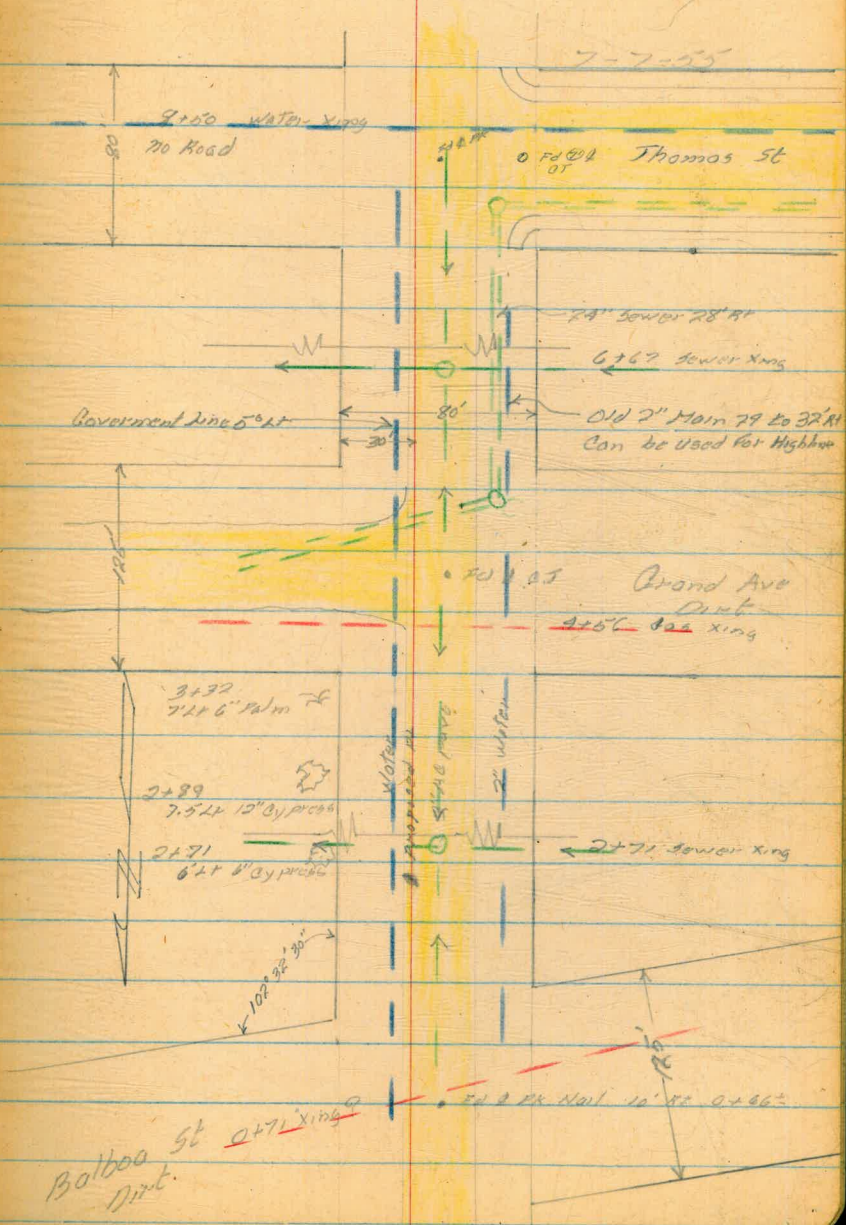 7-7-55
9+50 Water Xing
No Road
80'
Fd
Thomas St
24" Sewer 28' Rt
6+67 Sewer Xing
Goverment Line 5° Lt
80'
30'
Old 2" Main 29 to 32' Rt
Can be used For Highline
125'
Fd
Grand Ave
Dirt
4+56 Gas Xing
3+32
6" Palm
2+89
7.5 Lt 12" Cypress
2+71
6' Lt 6" Cypress
Water
Proposed
Road
2" Water
2+71 Sewer Xing
102° 32' 30"
125'
Fd PK Nail 10' Rt 0+46±
0+71 Xing
Balboa St
Dirt.